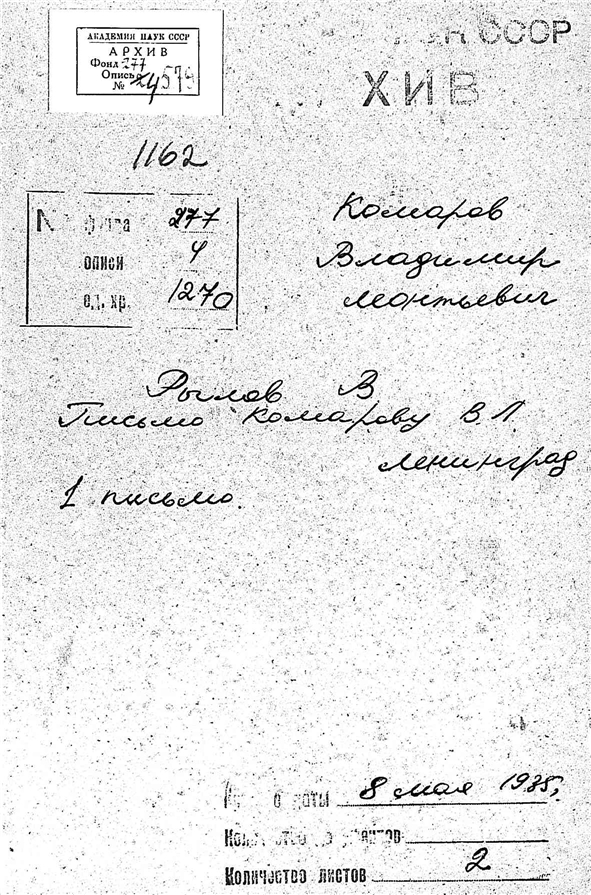 АКАДЕМИЯ НАУК СССР
АРХИВ
Фонд 277
Опись 4
№ 579
СССР
ХИВ
1162
№ фонда 277
описи 4
ед. хр. 1270
Комаров
Владимир
Леонтьевич
Рылов В
Письмо Комарову В.Л.
Ленинград
1 письмо.
даты 8 мая 1935г.
Количество
Количество листов 2